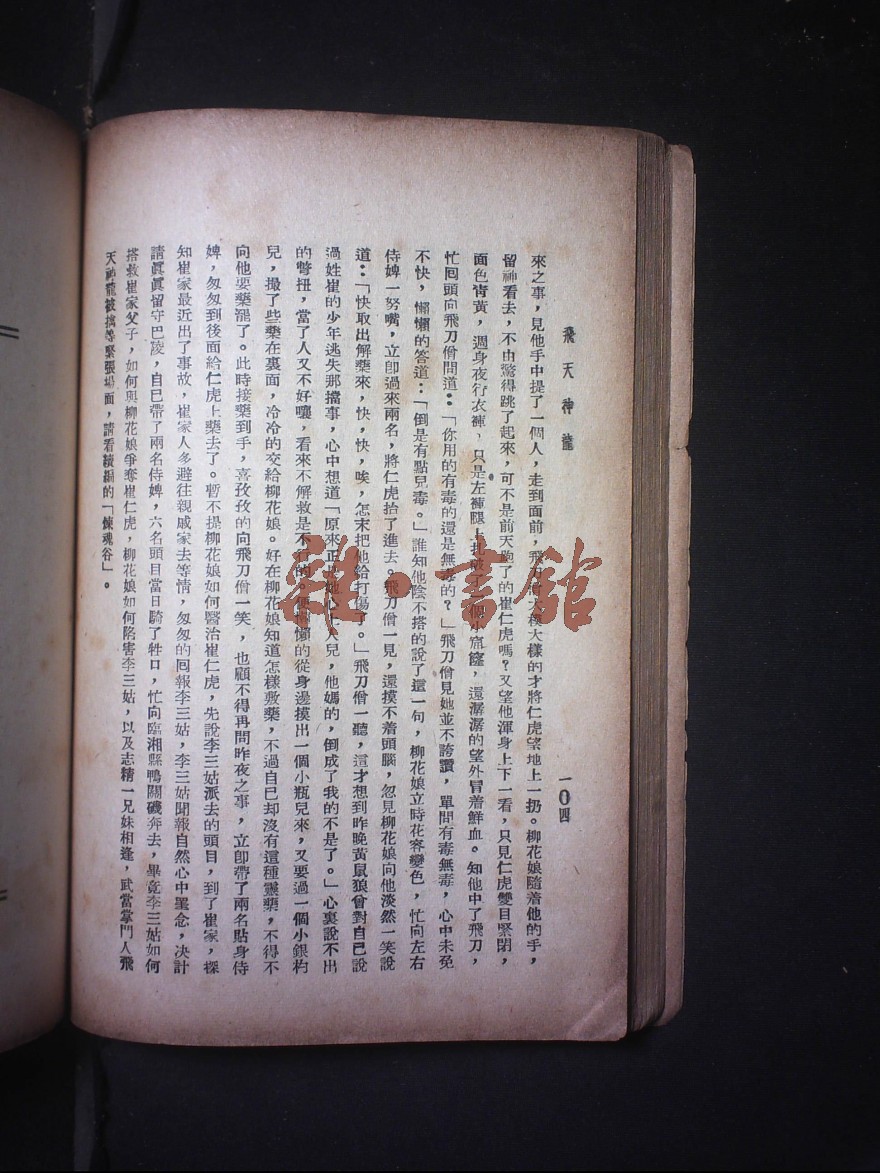 飛天神龍
一〇四
來之事，見他手中提了一個人，走到面前，飛刀僧大模大樣的才將仁虎望地上一扔。柳花娘隨着他的手，
留神看去，不由驚得跳了起來，可不是前天跑了的崔仁虎嗎？又望他渾身上下一看，只見仁虎雙目緊閉，
面色靑黃，週身夜行衣褲，只是左褲腿上扎破了一個小窟窿，還潺潺的望外冒着鮮血。知他中了飛刀，
忙囘頭向飛刀僧問道：「你用的有毒的還是無毒的？」飛刀僧見她並不誇讚，單問有毒無毒，心中未免
不快，懶懶的答道：「倒是有點兒毒。」誰知他陰不搭的說了這一句，柳花娘立時花容變色，忙向左右
侍婢一努嘴，立卽過來兩名，將仁虎抬了進去。飛刀僧一見，還摸不着頭腦，忽見柳花娘向他淡然一笑說
道：「快取出解藥來，快，快，唉，怎末把他給打傷了。」飛刀僧一聽，這才想到昨晚黃鼠狼曾對自已說
過姓崔的少年逃失那擋事，心中想道「原來正是她心上人兒，他媽的，倒成了我的不是了。」心裏說不出
的彆扭，當了人又不好嚷，看來不解救是不行的。便懶懶的從身邊摸出一個小瓶兒來，又要過一個小銀杓
兒，撮了些藥在裏面，冷冷的交給柳花娘。好在柳花娘知道怎樣敷藥，不過自已却沒有這種靈藥，不得不
向他要藥罷了。此時接藥到手，喜孜孜的向飛刀僧一笑，也顧不得再問昨夜之事，立卽帶了兩名貼身侍
婢，匆匆到後面給仁虎上藥去了。暫不提柳花娘如何醫治崔仁虎，先說李三姑派去的頭目，到了崔家，探
知崔家最近出了事故，崔家人多避往親戚家去等情，匆匆的囘報李三姑，李三姑聞報自然心中罣念，决計
請眞眞留守巴陵，自已帶了兩名侍婢，六名頭目當日騎了牲口，忙向臨湘縣鴨關磯奔去，畢竟李三姑如何
搭救崔家父子，如何與柳花娘爭奪崔仁虎，柳花娘如何陷害李三姑，以及志精一兄妹相逢，武當掌門人飛
天神龍被擒等緊張場面，請看續編的「煉魂谷」。
雜·書館